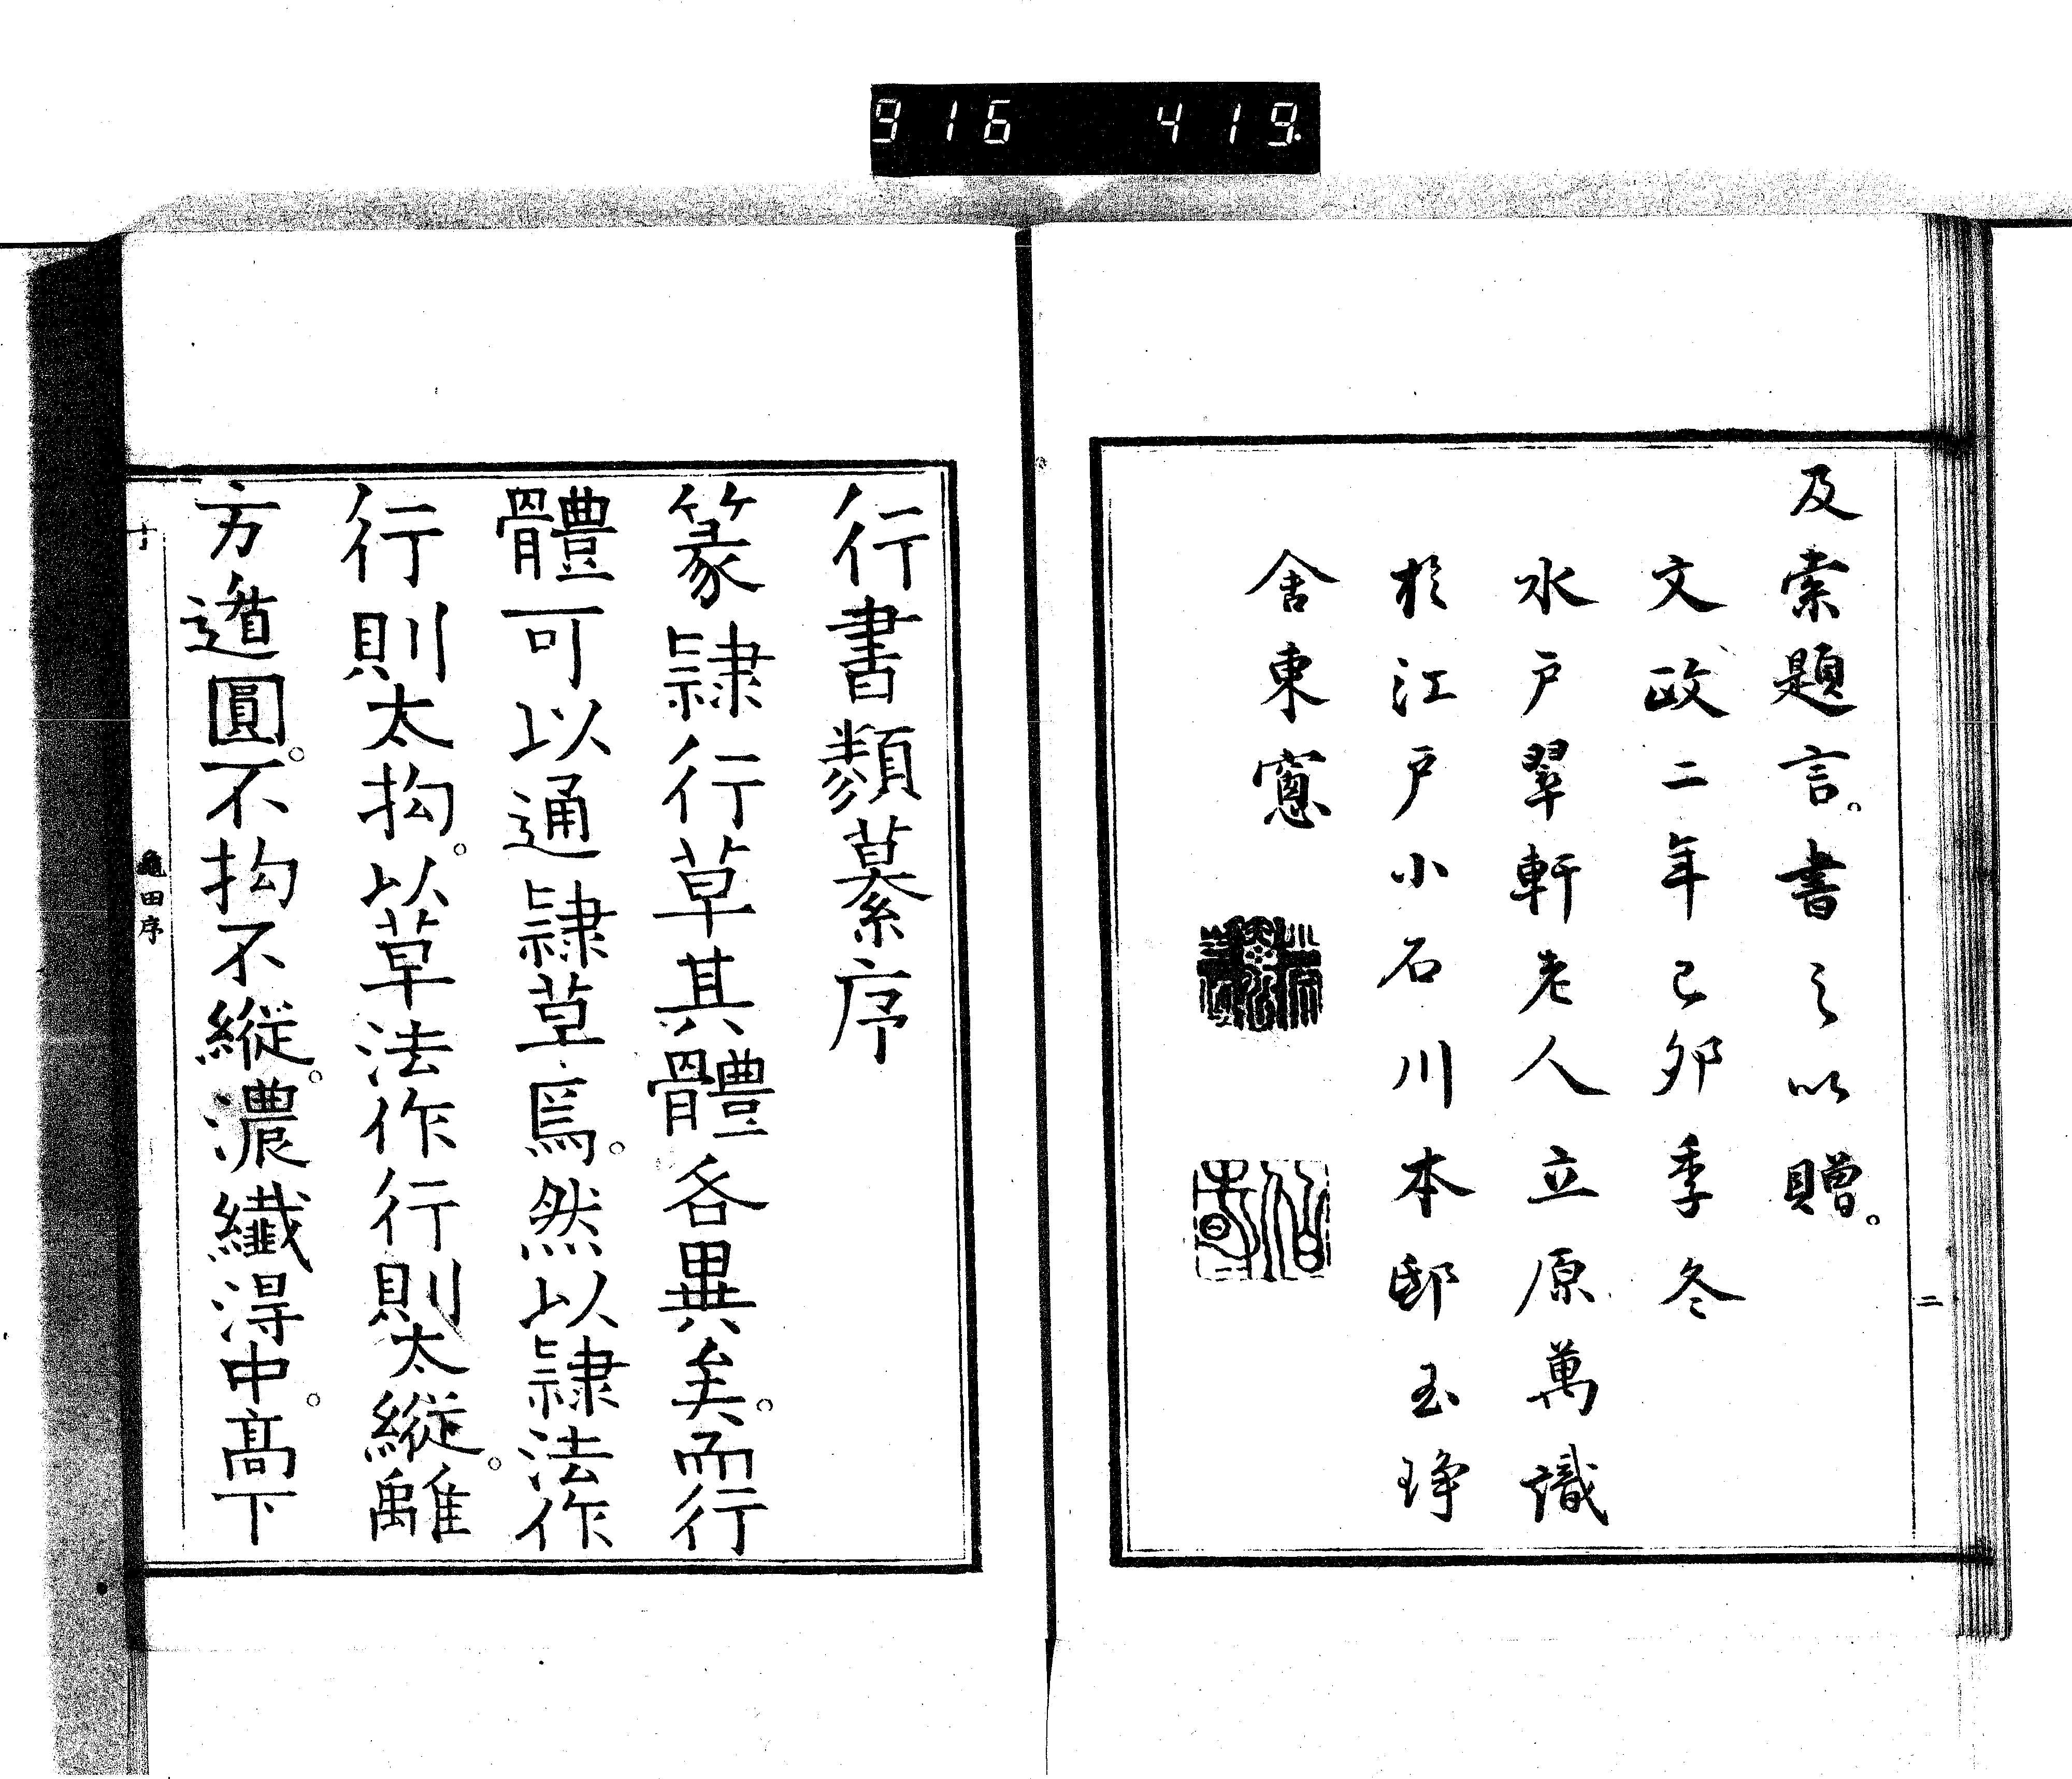 916 419
二
及索題言。書之以贈。
文政二年己卯季冬
水戸翠軒老人立原萬識
於江戸小石川本邸玉琤
舎東窻
行書類纂序
篆隷行草其體各異矣。而行
體可以通隷草焉。然以隷法作
行則太拘。以草法作行則太縦。離
方遁圓。不拘不縦。濃纖得中。高下
龜田序